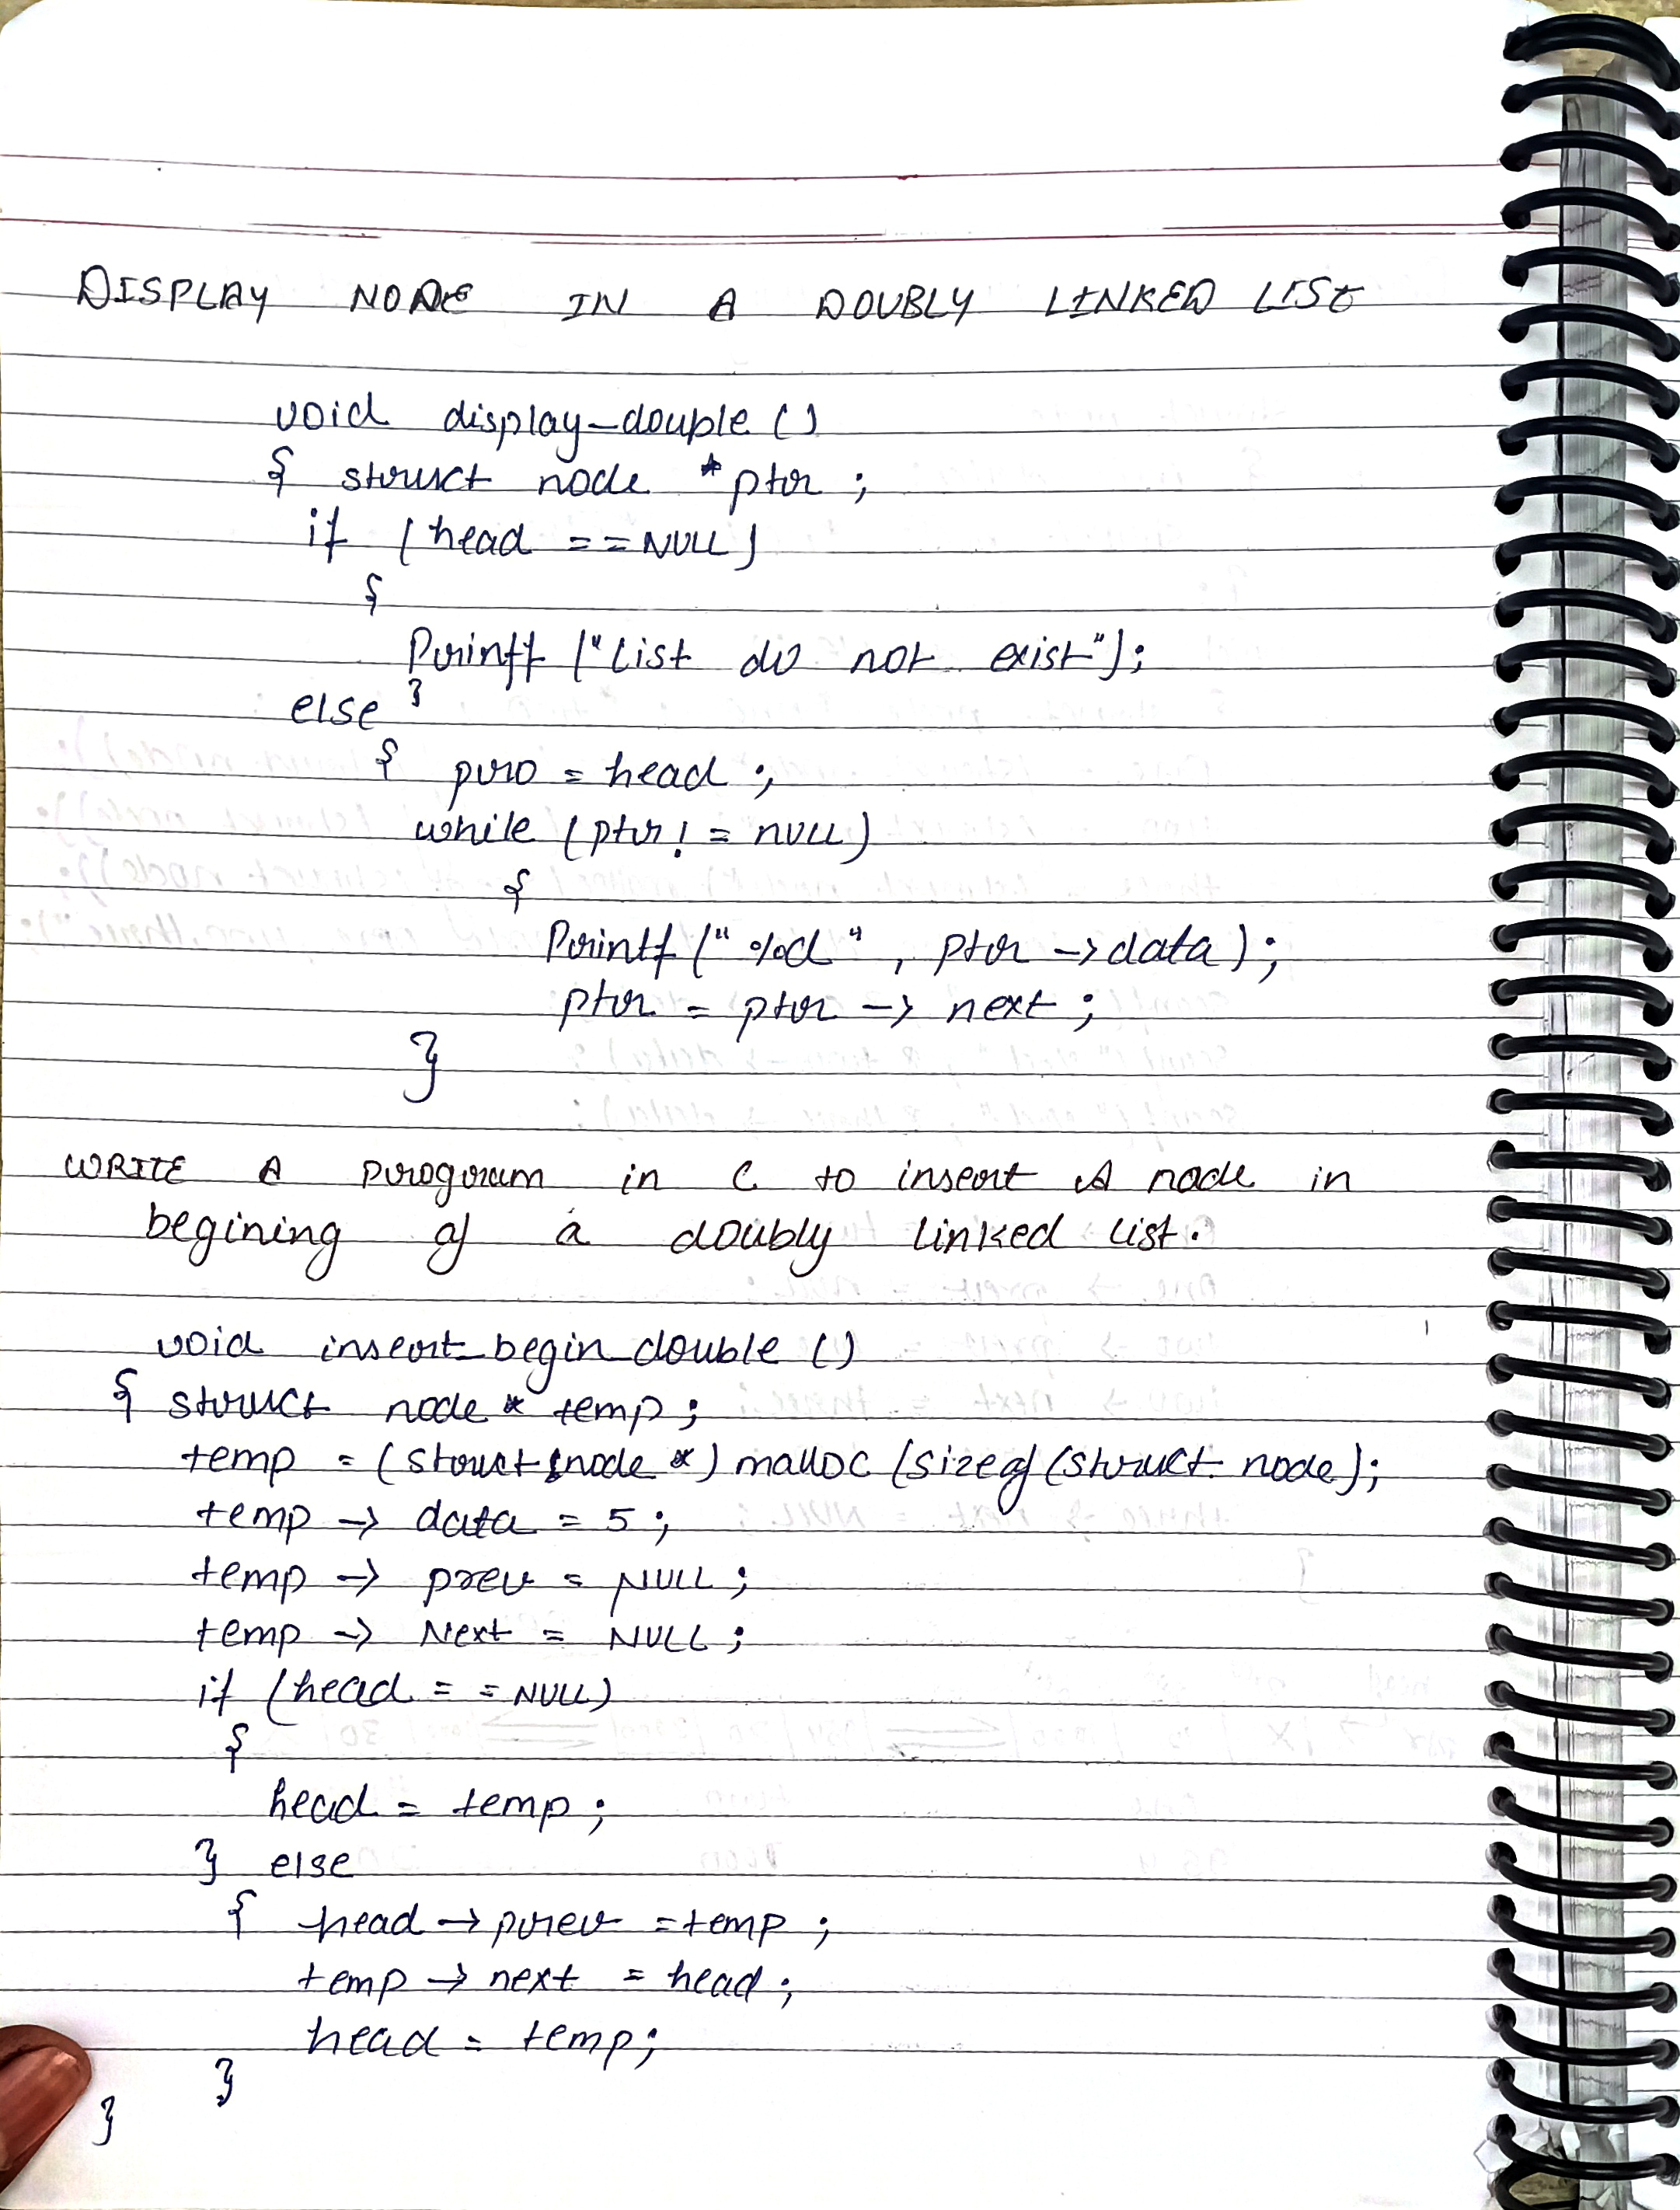 DISPLAY NODE IN A DOUBLY LINKED LIST
void display_double ()
{ struct node *ptr ;
if (head == NULL)
{
Printf ("List do not exist");
}
else
{ pro = head ;
while (ptr != NULL)
{
Printf ("%d", ptr -> data);
ptr = ptr -> next ;
}
WRITE A program in C to insert A node in
begining of a doubly linked list.
void insert_begin_double ()
{ struct node * temp ;
temp = (struct node *) malloc (sizeof (struct node);
temp -> data = 5 ;
temp -> prev = NULL ;
temp -> Next = NULL ;
if (head == NULL)
{
head = temp ;
} else
{ head -> prev = temp ;
temp -> next = head ;
head = temp ;
}
}